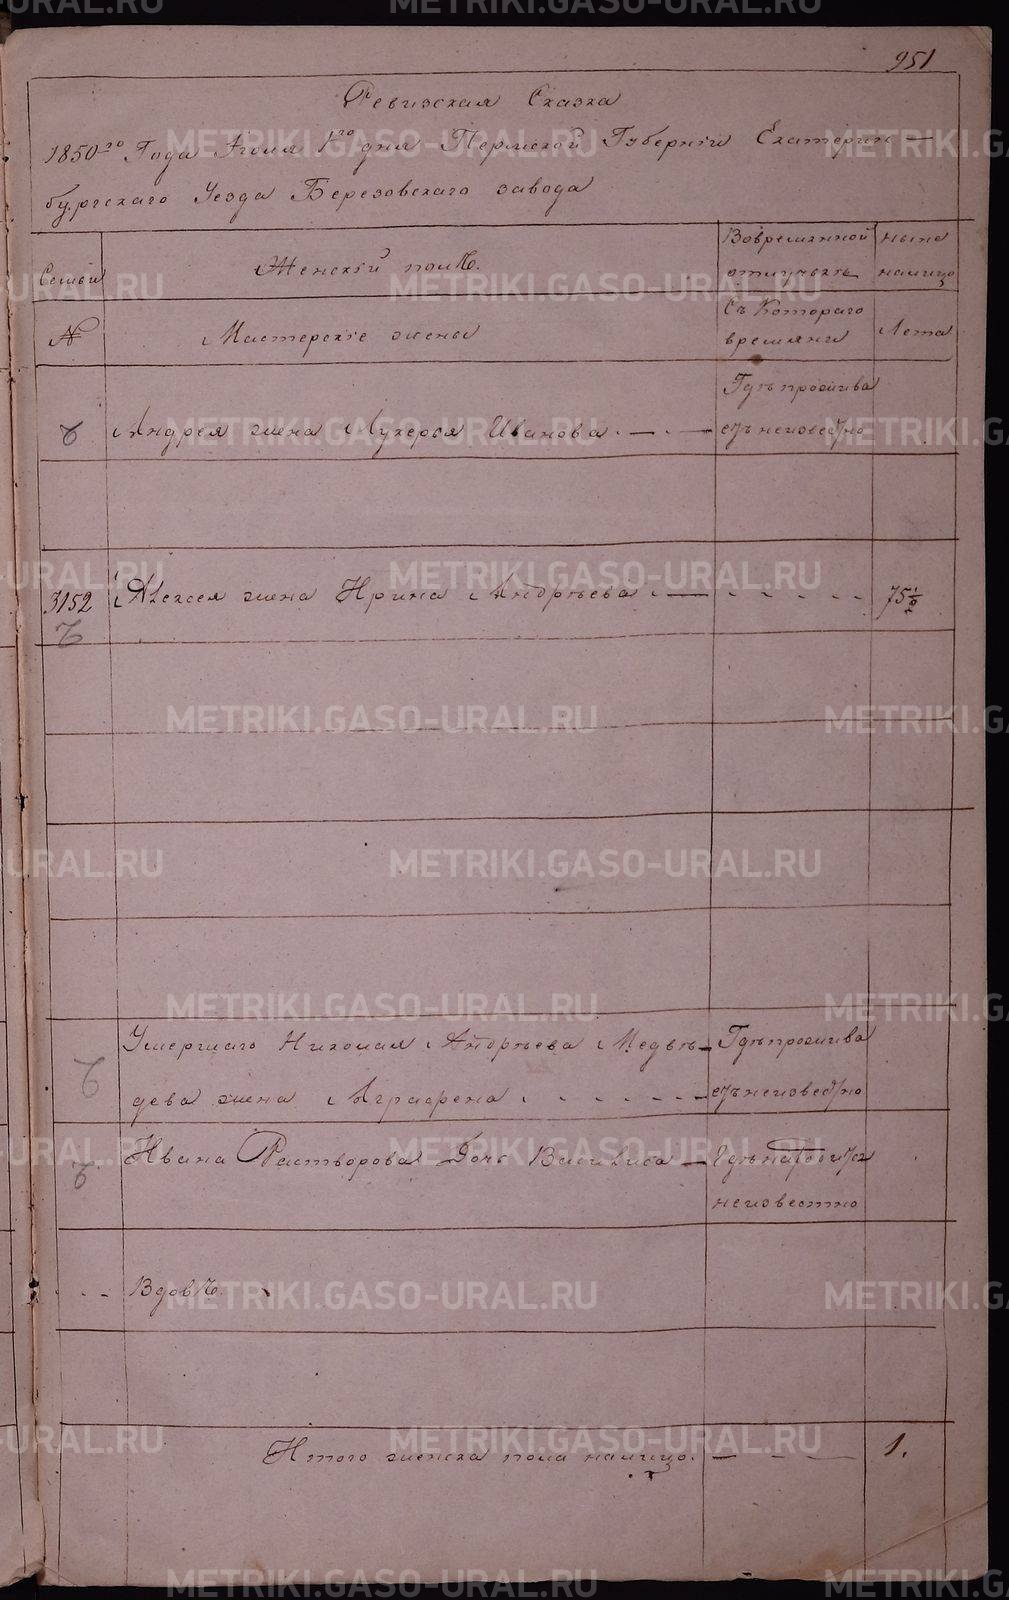 951
Ревизская Сказка
1850го Года Июля 1го дня Пермской Губернiи Екатерин-
бургскаго Уезда Березовскаго завода
Семьи
Женскiй полъ.
Вовременной отлучкѣ
ныне налицо
№
Мастерскiе жены
Съ Котораго времяни
Лета
Андрея жена Лукерья Иванова
Гдѣ прожива
етъ неизвестно
3152
Алексея жена Ирина Андрѣева
75 1/2
Умершаго Николая Андрѣева Медвѣ-
дева жена Аграфена
Гдѣ прожива
етъ неизвестно
Ивана Растворова Дочь Василиса
Гдѣ находится
неизвестно
Вдовъ.
Итого женска пола налицо.
1.
METRIKI.GASO-URAL.RU